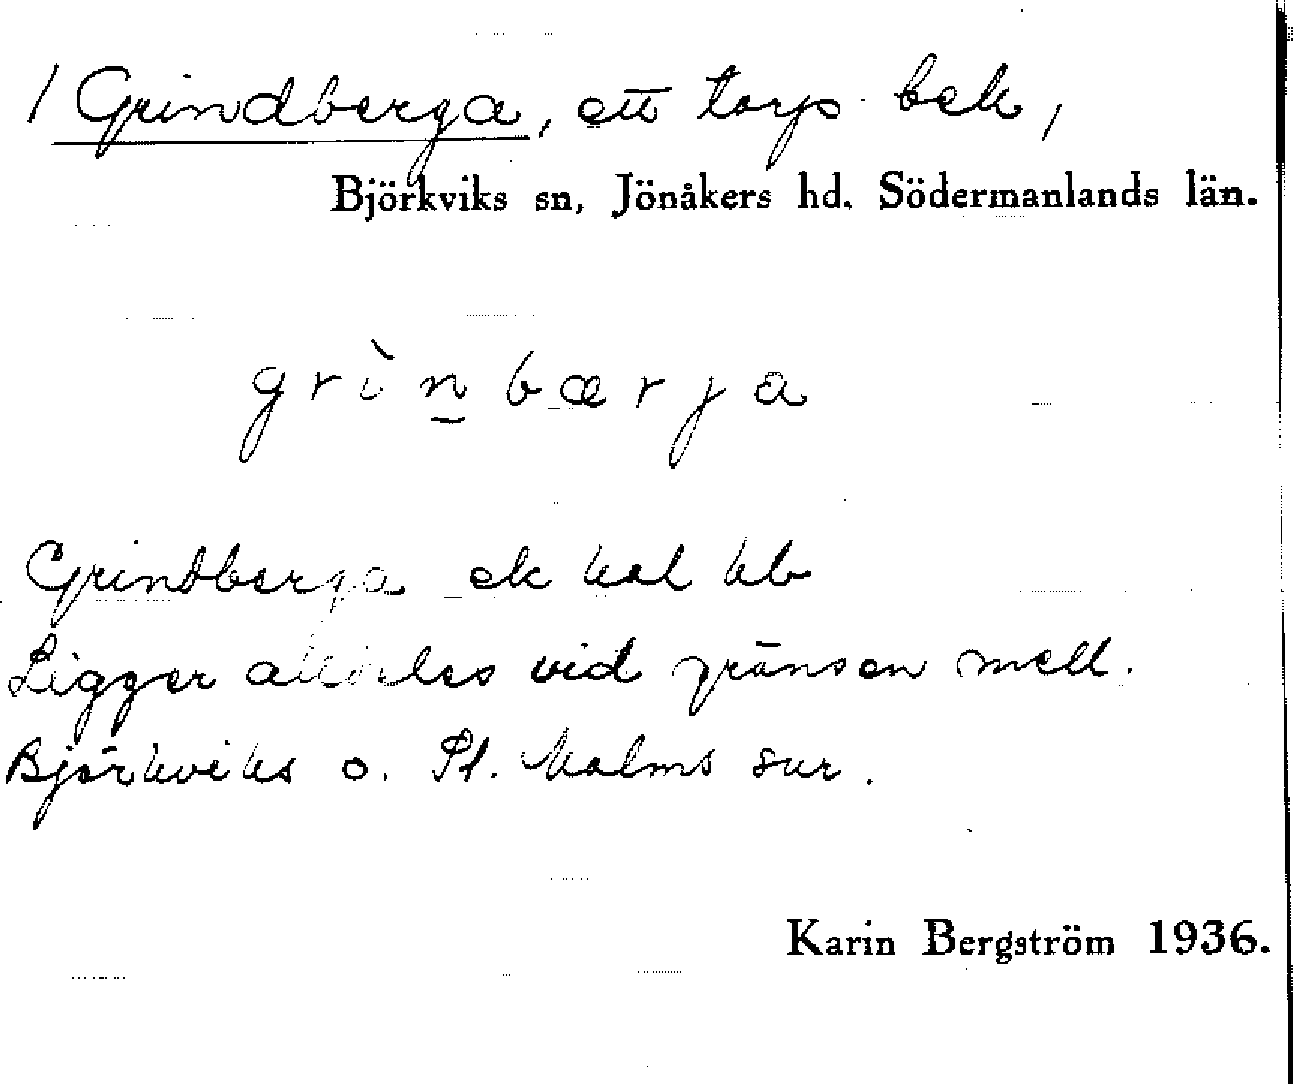 / Grindberga, ett torp bek,
Björkviks sn, Jönåkers hd. Södermanlands län.
grìn̲bærja
Grindberga ek kal kb
Ligger alldeles vid gränsen mell.
Björkviks o. St. Malms snr.
Karin Bergström 1936.